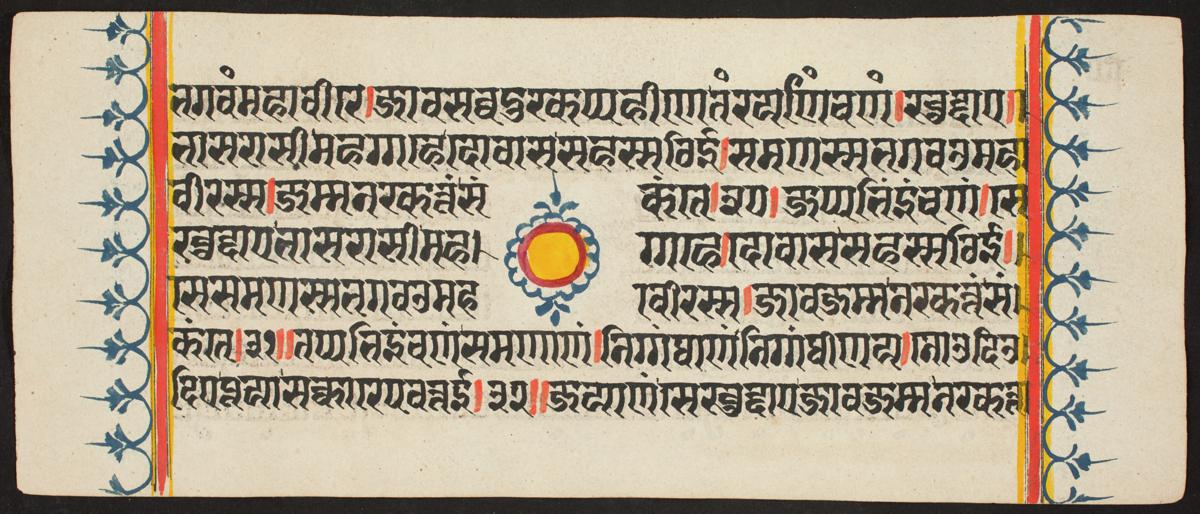 तगवंमहावीरे।जावसवदुरकप्पहीणेतंरयणिंचणं।खुद्दाए।
तासरासीमहग्गहेदोवाससहस्सठिई।समणस्सतगवउमहा
वीरस्स।जम्मनरकत्तंसं कंते।३०।जप्पतिइंचणं।से
खुद्दाएतासरासीमह। ग्गहे।दोवाससहस्सठिई।
सेसमणस्सतगवउमह ावीरस्स।जावजम्मनरकत्तंसं।
कंते।३१॥तप्पतिइंचणंसमणाणं।निग्गंथाणंनिग्गंथीणय।नोउदिउ
दिएपूयासक्कारेपवत्तई।३२॥जयाणंसेखुद्दाएजावजम्मनरकत्ता